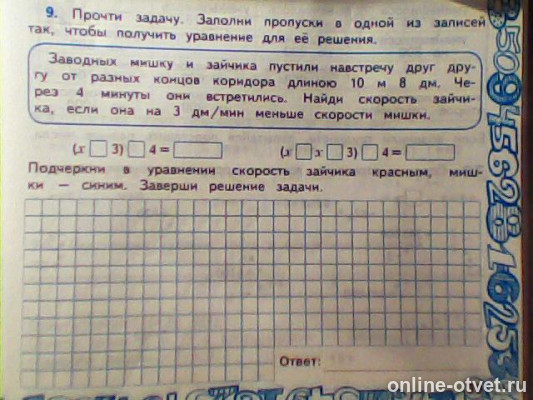 9. Прочти задачу. Заполни пропуски в одной из записей
так, чтобы получить уравнение для её решения.
Заводных мишку и зайчика пустили навстречу друг дру-
гу от разных концов коридора длиною 10 м 8 дм. Че-
рез 4 минуты они встретились. Найди скорость зайчи-
ка, если она на 3 дм/мин меньше скорости мишки.
(x □ 3) □ 4 = □ (x □ x □ 3) □ 4 = □
Подчеркни в уравнении скорость зайчика красным, миш-
ки — синим. Заверши решение задачи.
Ответ:
online-otvet.ru